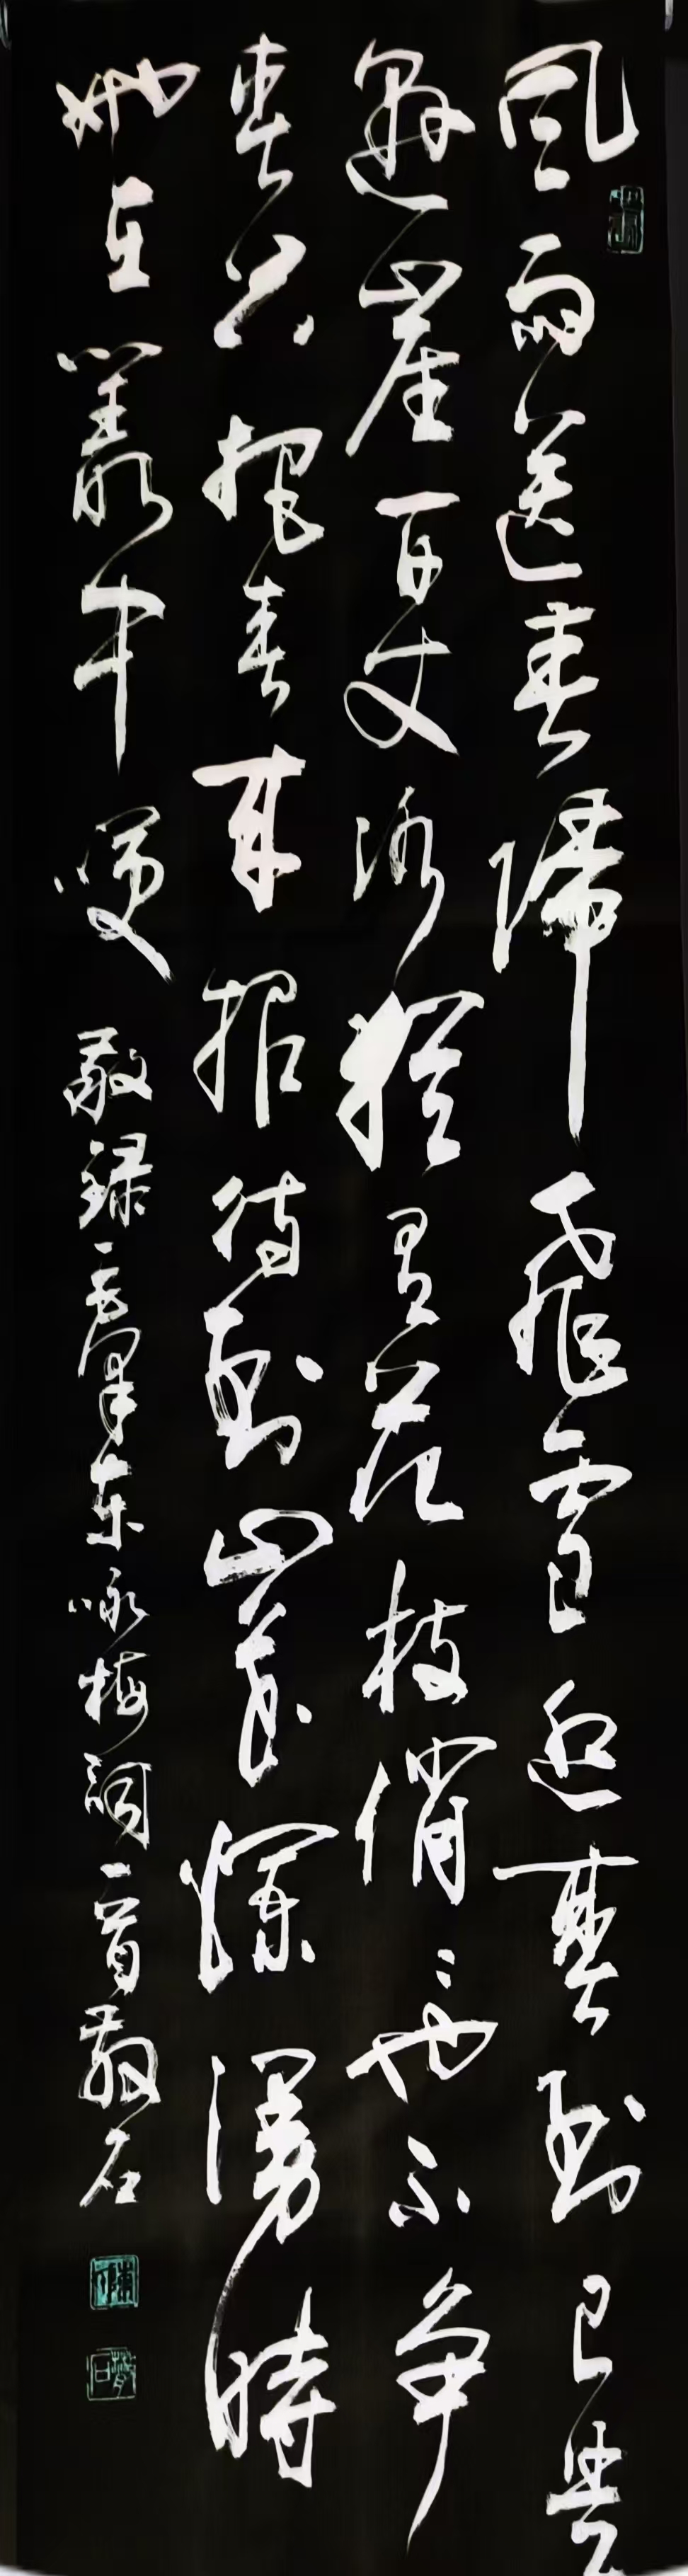 風雨送春歸飛雪迎春到已是
懸崖百丈冰猶有花枝俏〻也不争
春只把春来報待到山花爛漫時
她在叢中笑 敬録毛澤東咏梅詞一首 石